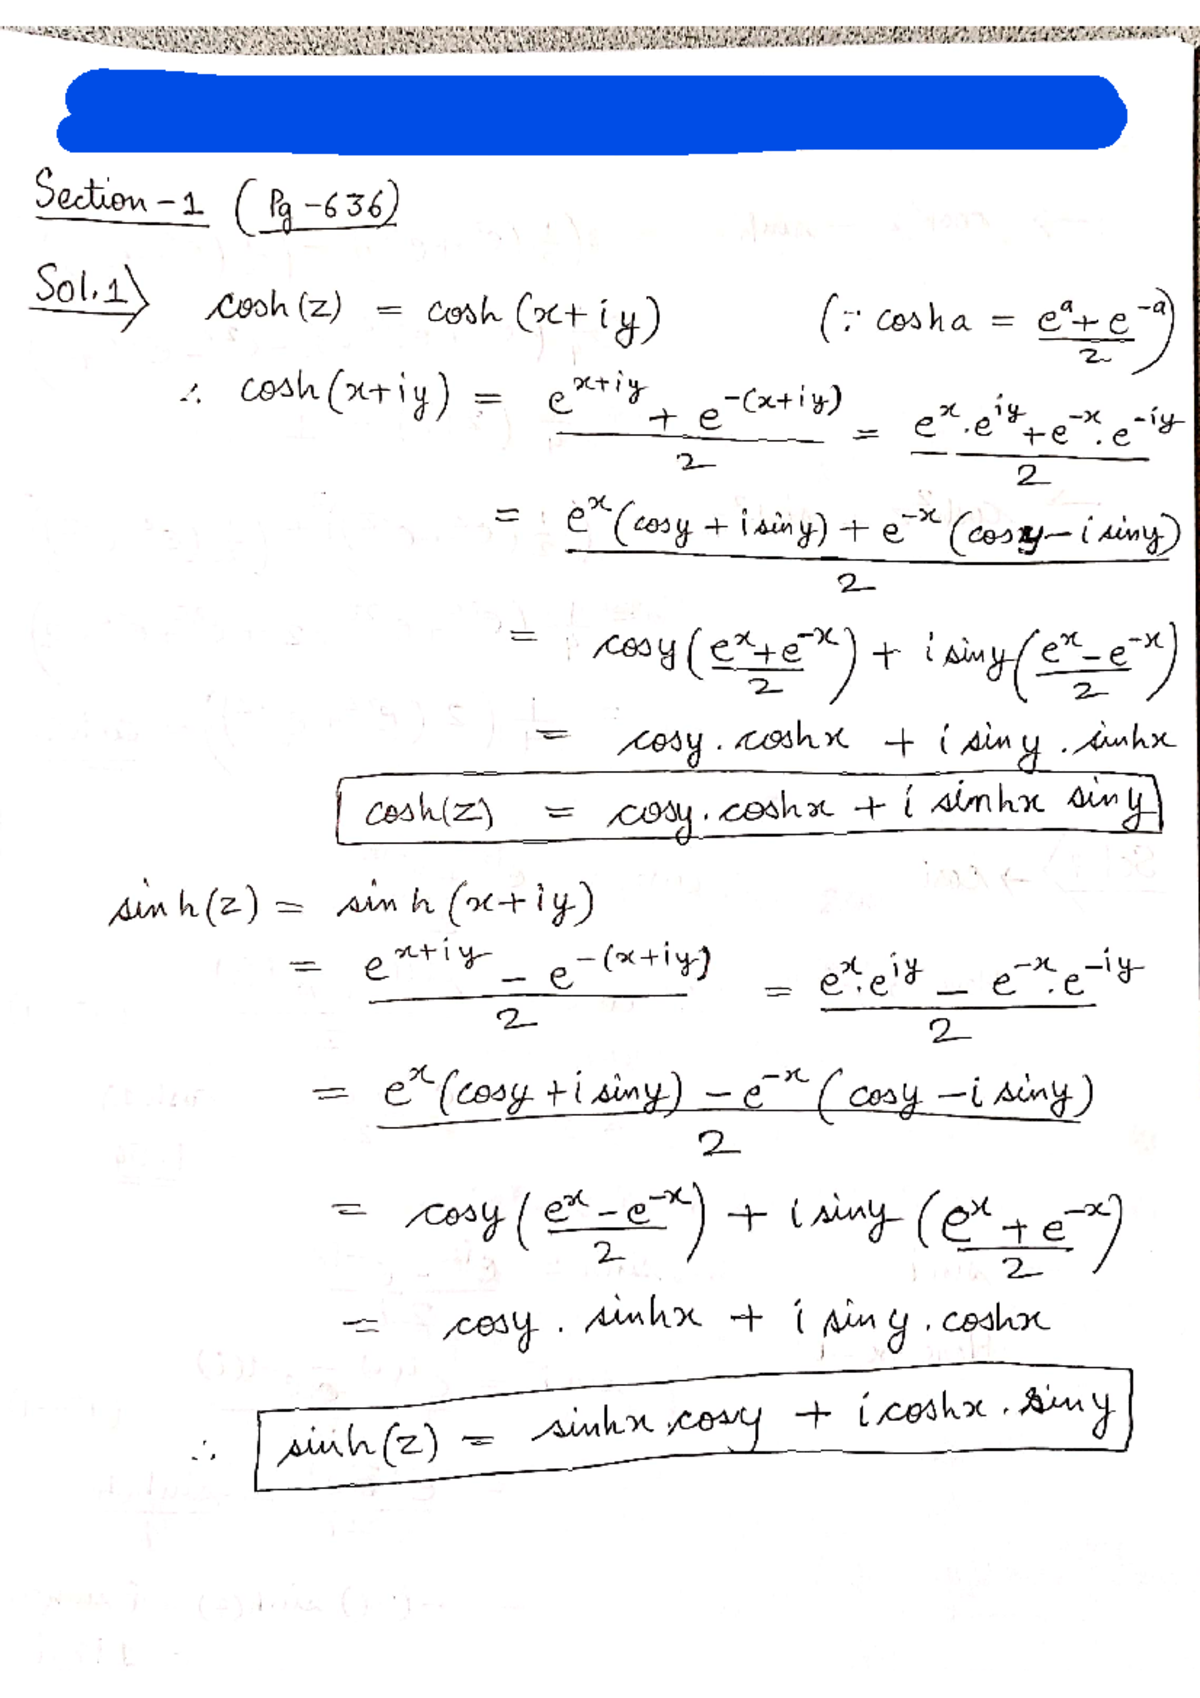 Section-1 (Pg-636)
Sol.1> cosh(z) = cosh(x+iy) (∵ cosha = (e^a+e^-a)/2)
∴ cosh(x+iy) = (e^(x+iy) + e^-(x+iy))/2 = (e^x.e^iy+e^-x.e^-iy)/2
= (e^x(cosy+isiny)+e^-x(cosy-isiny))/2
= cosy((e^x+e^-x)/2) + isiny((e^x-e^-x)/2)
= cosy.coshx + isiny.sinhx
cosh(z) = cosy.coshx + i sinhx siny
sinh(z) = sinh(x+iy)
= (e^(x+iy) - e^-(x+iy))/2 = (e^x.e^iy - e^-x.e^-iy)/2
= (e^x(cosy+isiny) - e^-x(cosy-isiny))/2
= cosy((e^x-e^-x)/2) + isiny((e^x+e^-x)/2)
= cosy.sinhx + isiny.coshx
∴ sinh(z) = sinhx.cosy + icoshx.siny